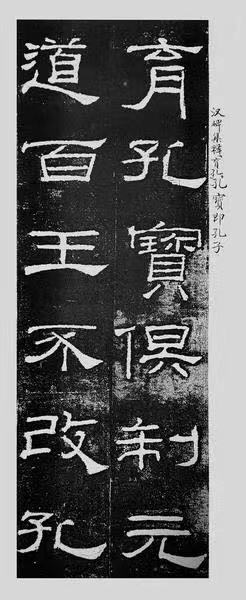 汉碑集释育孔孔 寳即孔子
育孔寶俱制元
道百王不改孔